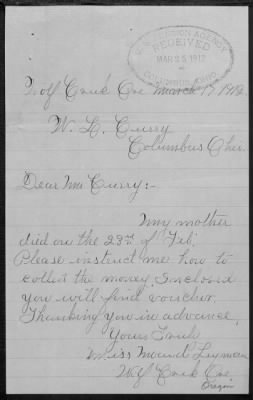 U.S. PENSION AGENCY
RECEIVED
MAR 25 1912
COLUMBUS, OHIO
Wolf Creek Ore March 19 1912
W. L. Curry
Columbus Ohio.
Dear Mr Curry:-
My mother
died on the 23rd of Feb.
Please instruct me how to
collect the money. Inclosed
you will find voucher.
Thanking you in advance,
Yours Truly
Miss Maud
Wolf Creek Ore
Oregon